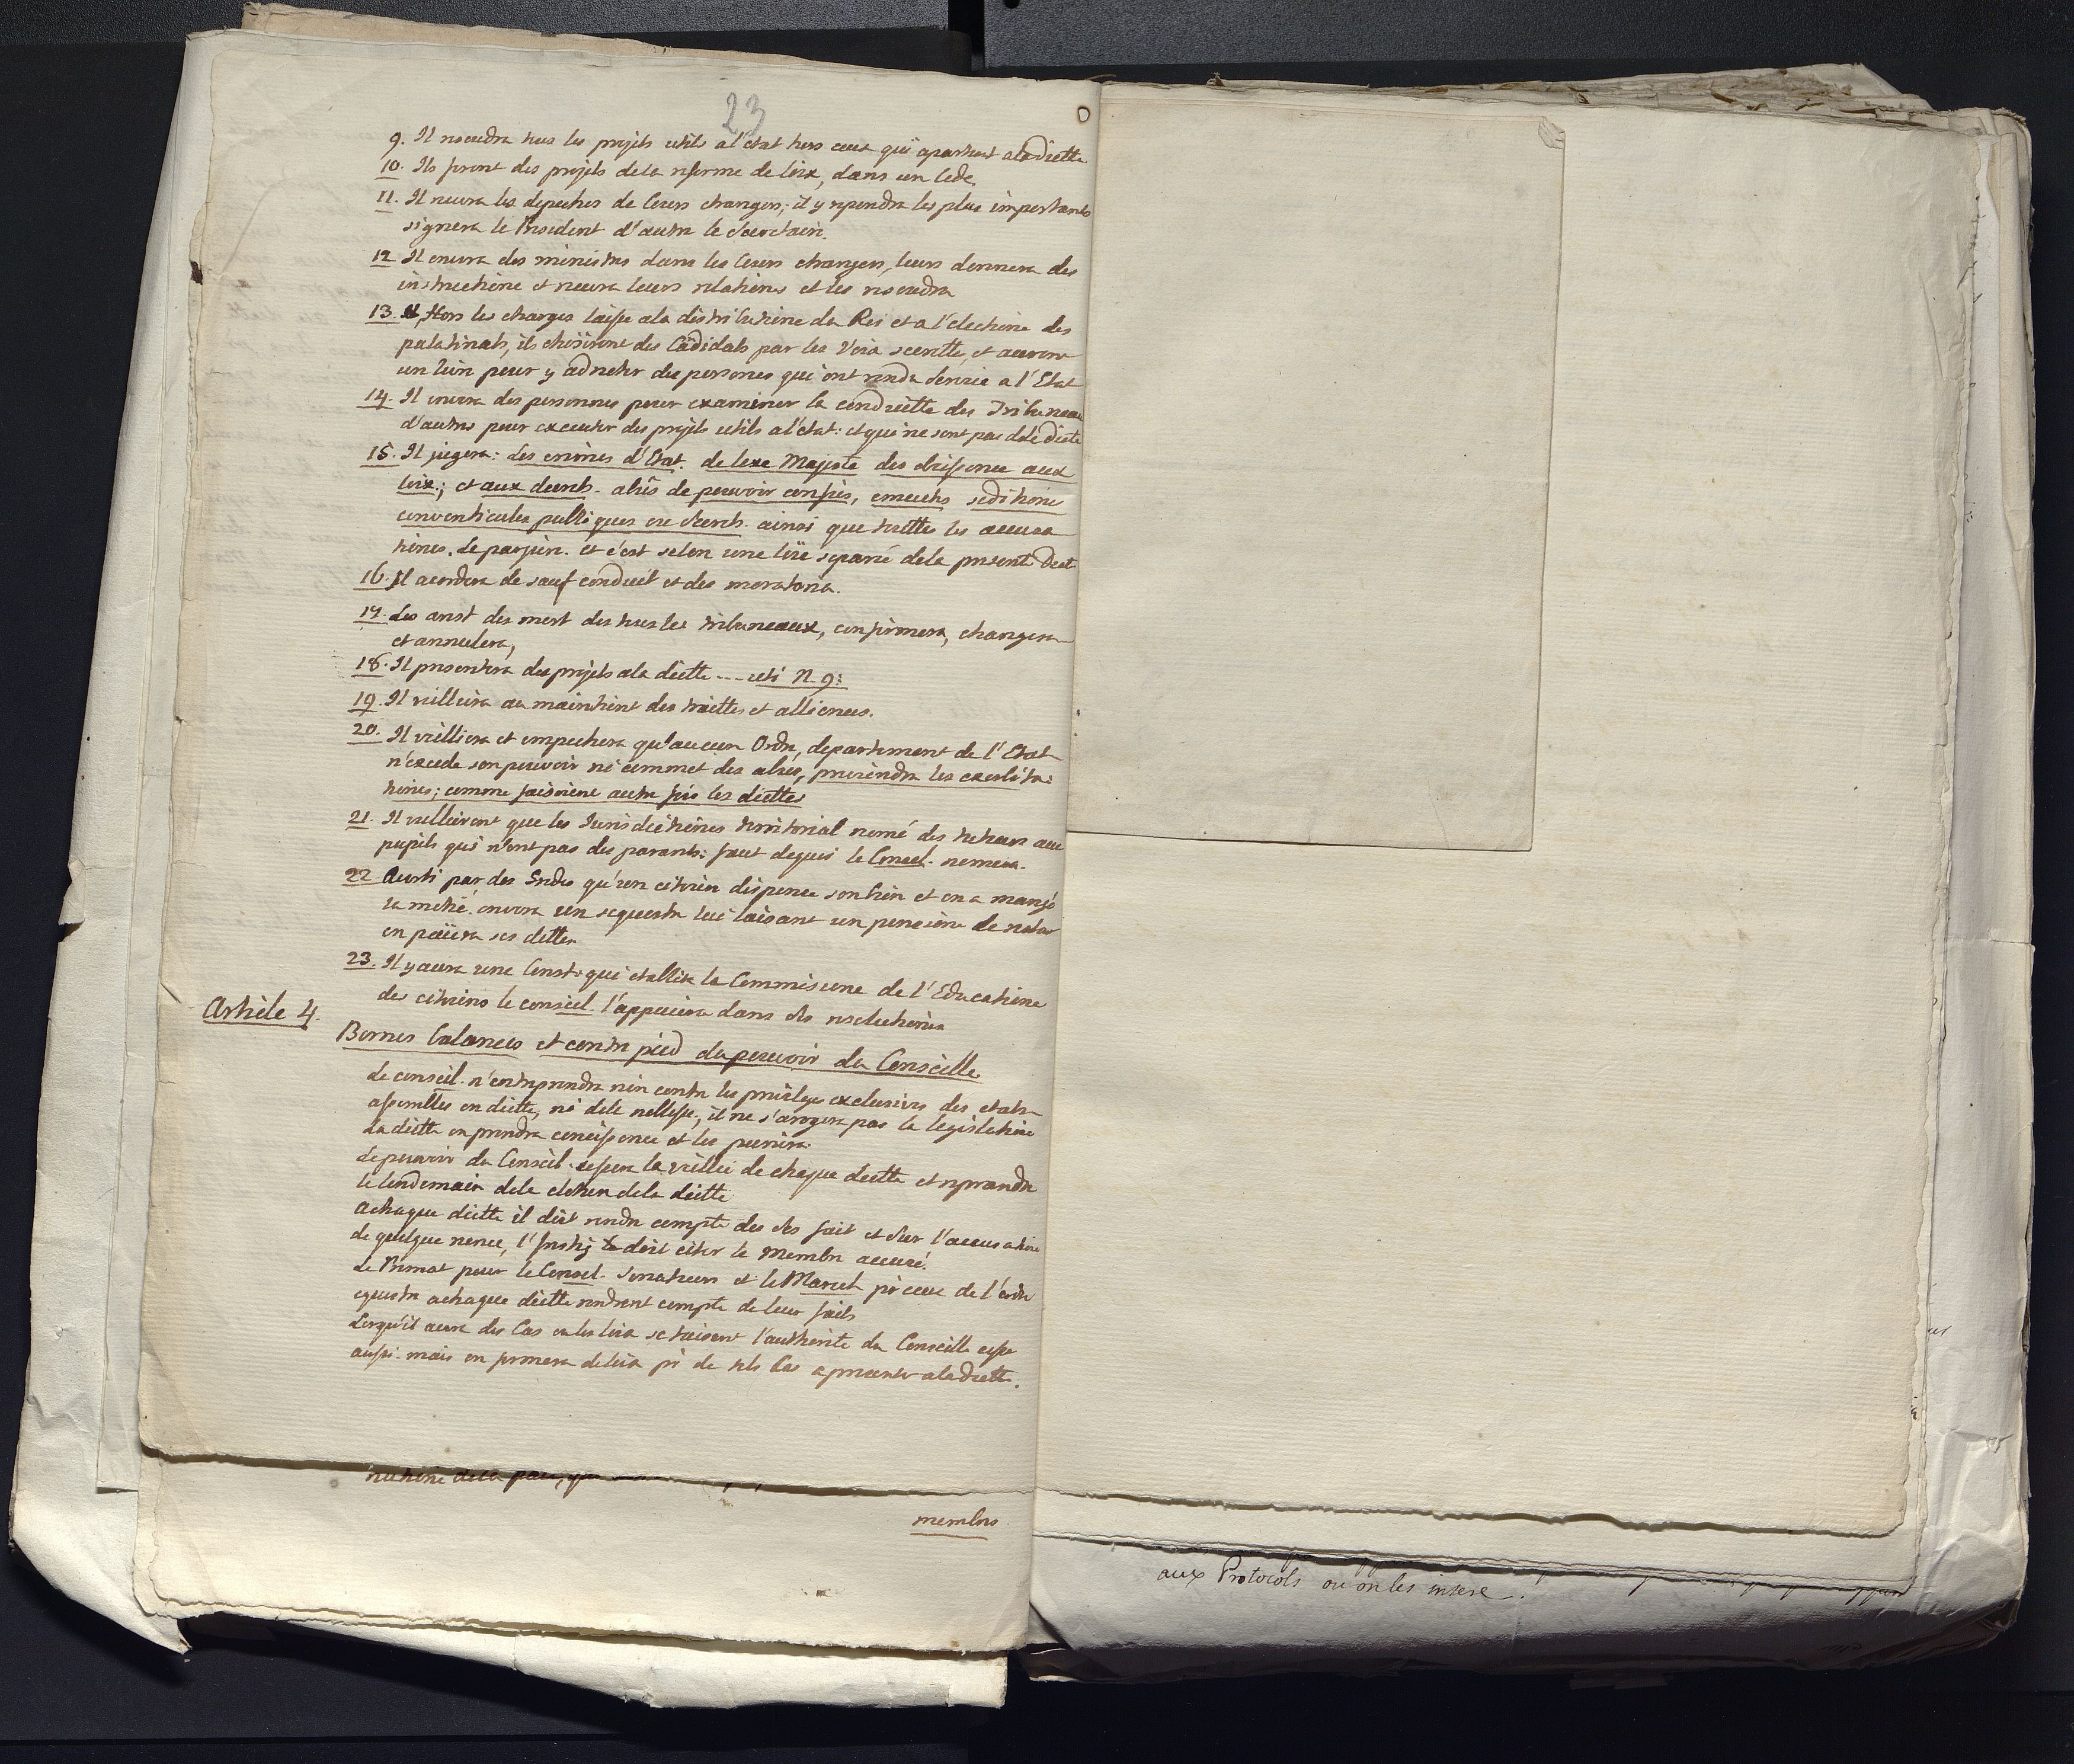 23
9. Il rescudra tous les projets utils al'état hors ceux qui apartient aladiette
10. Ils feront des projets dela reforme de loix, dans un Code.
11. Il recura les depeches de Cours etrangers; il y rependra les plus importants
signera le President d'autre le Secretaire.
12 Il envera des ministres dans les Cours etrangers, leurs donnera des
instructione et recevra leurs relations et les rescudra
13. Hors les charges laisse ala distributione du Roi et a l'electione des
palatinats, ils choisiront des Cadidats par les Voix secrette, et aurone
un soin pour y admettre des persones qui ont rendu service a l'Etat
14. Il envera des personnes pour examiner la conduitte des Tribuneaux
d'autres pour executer des projets utils al'état: et qui ne sont pas dela diete
15. Il jugera: les crimes d'Etat. de leze Majesté des obeissence aux
loix; et aux decrets. abus de pouvoir confiés, emeutes seditione
conventicules publiques ou secrets. ainsi que toutte les accusa
tiones. de parjure. et c'est selon une loix separé dela presente diete
16. Il acordera de sauf conduit et des moratoria.
17. Les arest des mort des tous les tribuneaux, confirmera, changera
et annulera,
18. Il presentera des projets ala diette --- N 9:
19. Il villeira au maintient des traittes et alliences.
20. Il veillera et empechera qu'aucun Ordre, departement de l'Etat
n'excede son pouvoir ni commet des abus, previendra les exorbita:
tiones; comme faisoient autre fois les diettes
21. Il veilleiront que les Jurisdictiones territorial nomé des tuteurs aux
pupils qui n'ont pas des parants: faut dequoi le Conseil. nomera.
22. Averti par des Ordre qu'un citoien dispence son bien et en a mangé
la moitié. envera un sequestre lui laisant un pensione de reste
en paiera ses dettes
23. Il y aura une Const: qui etablira la Commisione de l'Educatione
des citoiens le conseil l'appuiera dans ses resolutiones
Article 4.
Bornes balances et contre pied du pouvoir du Conseille
Le conseil. n'entreprendra rien contre les privileges exclusives des etats
assemblés en diette, ni dela noblesse, il ne s'arogera pas la legislatione
La diette en prendra connoissence et les punira.
Le pouvoir du Conseil. cessera la veille de chaque diette et reprandra
le lendemain dela cloture dela diette
Achaque diette il doit rendre compte des ses fait et sur l'accusatione
de quelque nonce, l'Instig doit citer le Membre accusé.
Le Primat pour le Conseil. Senateurs et le Marech pr ceux de l'ordre
equestre achaque diette rendront compte de leur faits
Lorsqu'il aura des Cas ou les loix se taisent l'authorité du Conseille cesse
aussi. mais on formera deloix pr de tels Cas a presenter aladiette.
membres
aux Protocols ou on les insere.